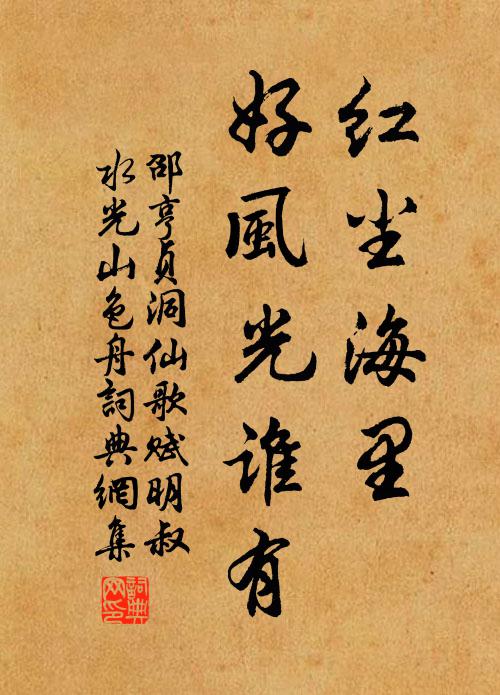 红尘海里
好風光谁有
邵亨貞洞仙歌赋明叔
水光山色舟詞典網集
詞典网印